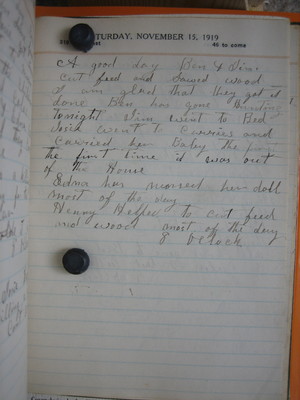 SATURDAY, NOVEMBER 15, 1919
46 to come
A good day Ben & Jim
cut feed and Sawed wood
I am glad that they got it
done Ben has gone Hunting
Tonight Jim went to Bed
went to Carries and
Carried her Baby the
the first time it was out
of the House
Edna has nursed her doll
most of the day
Henry Helped to cut feed
and wood most of the day
8 O Clock